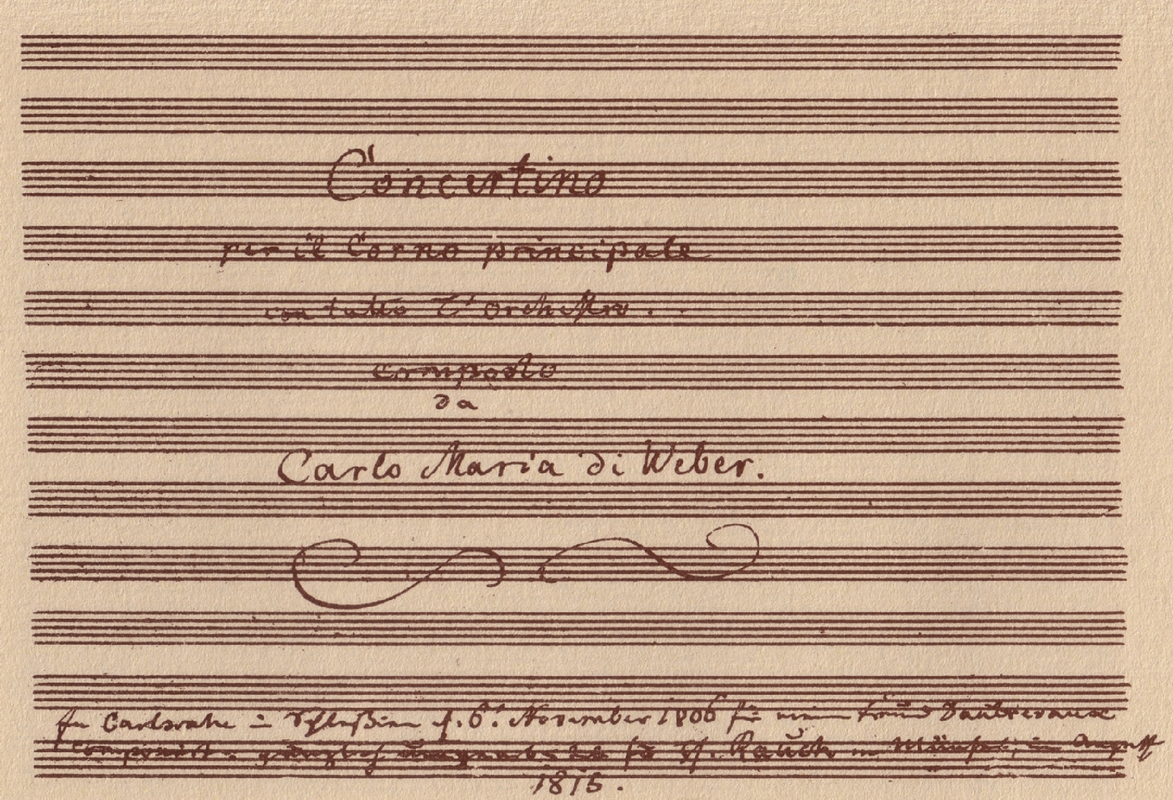 Concertino
per il Corno principale
con tutta l'orchestra.
composto
da
Carlo Maria di Weber.
In Carlsruhe in Schlesien d. 6t November 1806 für Dautrevaux
componirt. gänzlich umgearbeitet für H. Rauch in München, im August
1815.